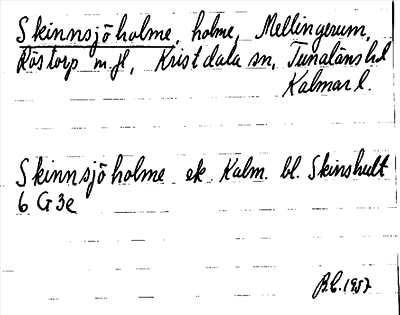 Skinnsjöholme, holme, Mellingerum,
Röstorp m.fl., Kristdala sn, Tunaläns hd
Kalmar l.
Skinnsjöholme ek. Kalm. bl. Skinshult
6 G 3e
R.C. 1957